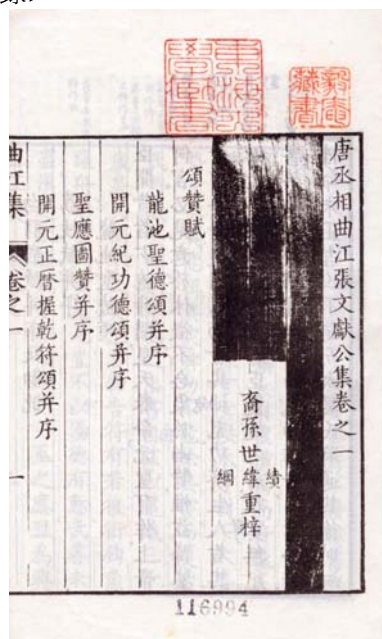 唐丞相曲江張文獻公集卷之一
績
裔孫世緯重梓
綱
頌贊賦
龍池聖德頌并序
開元紀功德頌并序
聖應圖贊并序
開元正暦握乾符頌并序
曲江集 卷之一 一
116994